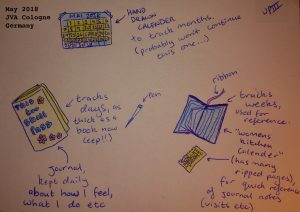 May 2018
JVA Cologne
Germany
MAI 2018
HAND
DRAWN
CALENDER
to track months.
(probably won't continue
this one...)
VPIII
tracks
days, as
thick as a
book now
(eep!!)
pen
ribbon
tracks
weeks,
used for
reference.
"womens
kitchen
Calender"
(has many
ripped pages),
for quick reference
of journal notes
(visits etc)
Journal,
kept daily
about how I feel,
what I do etc